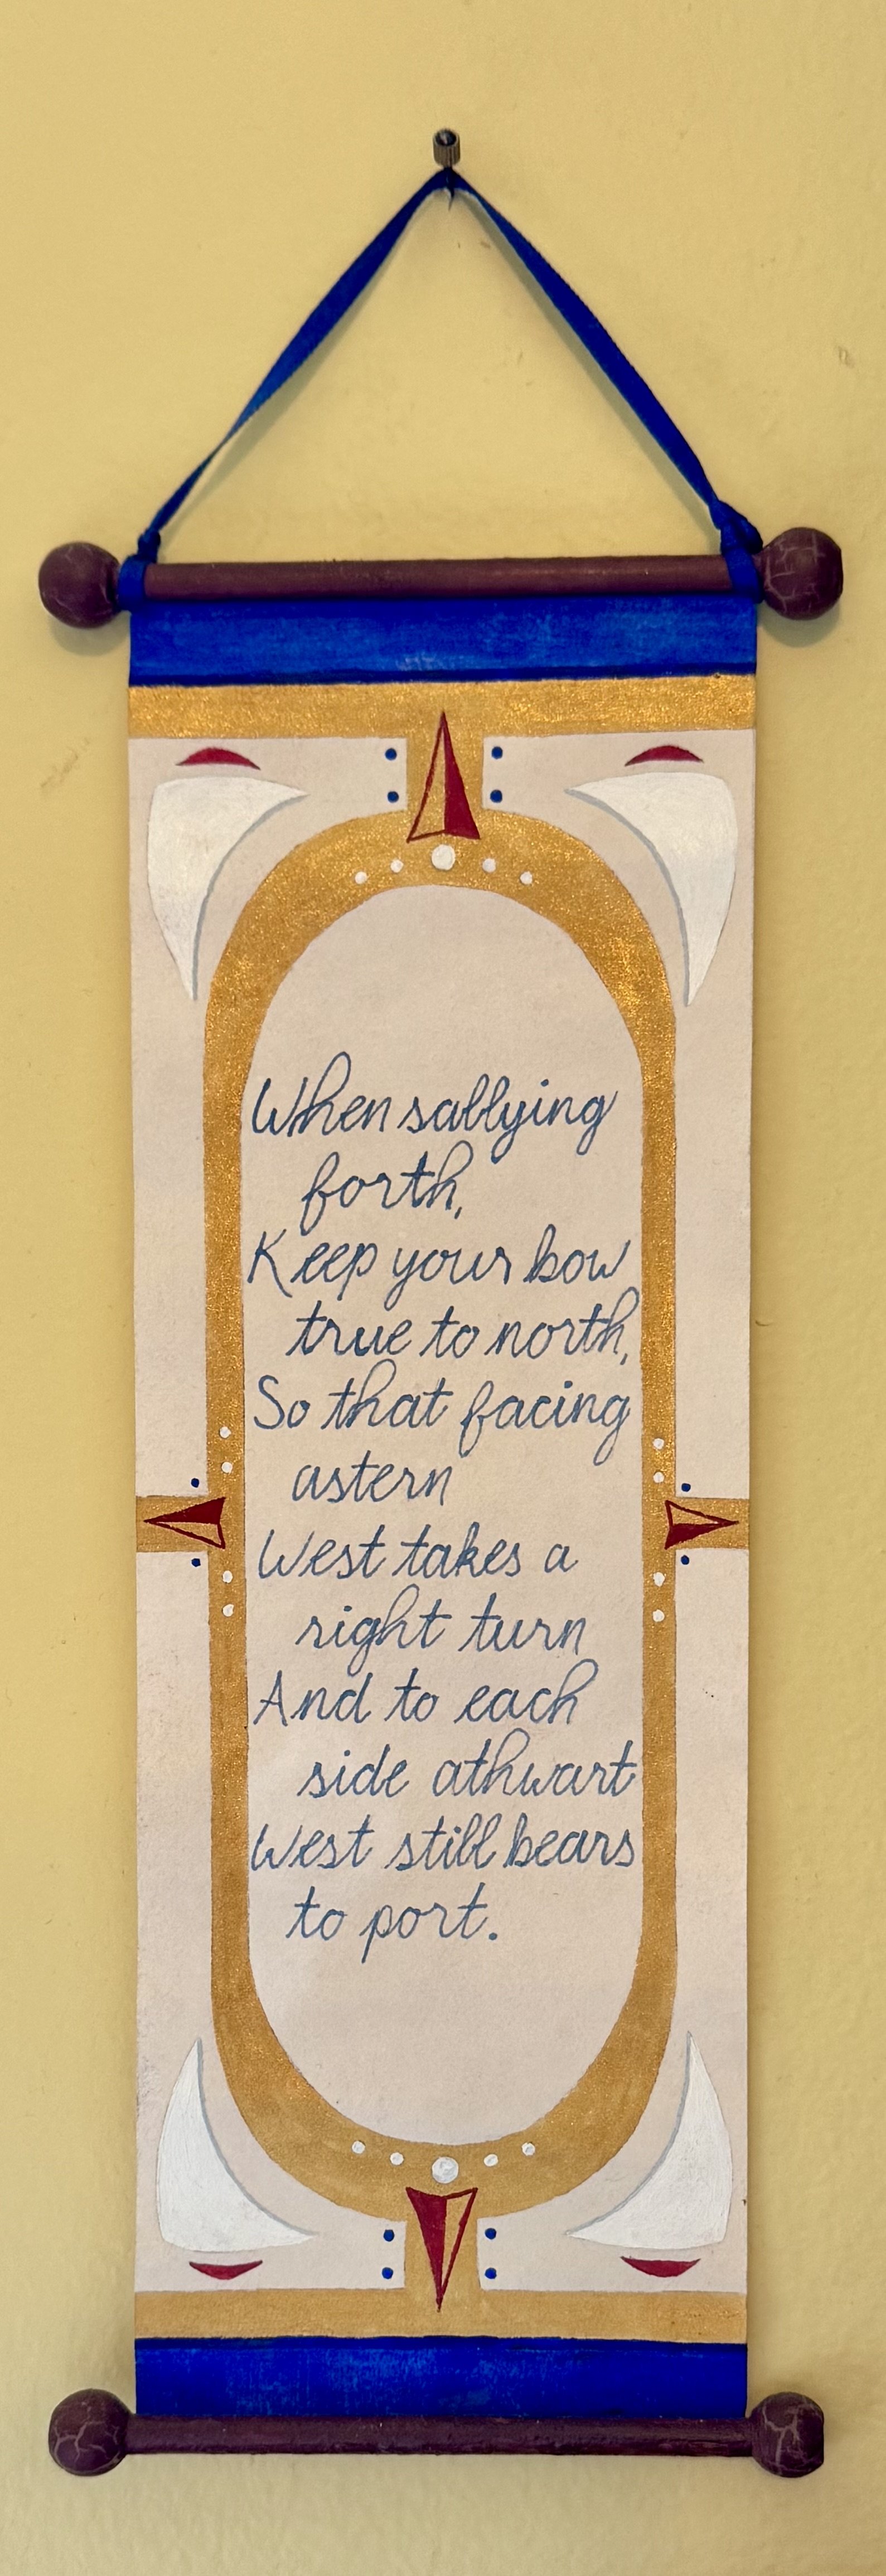 When sallying
forth,
Keep your bow
true to north,
So that facing
astern
West takes a
right turn
And to each
side athwart
West still bears
to port.